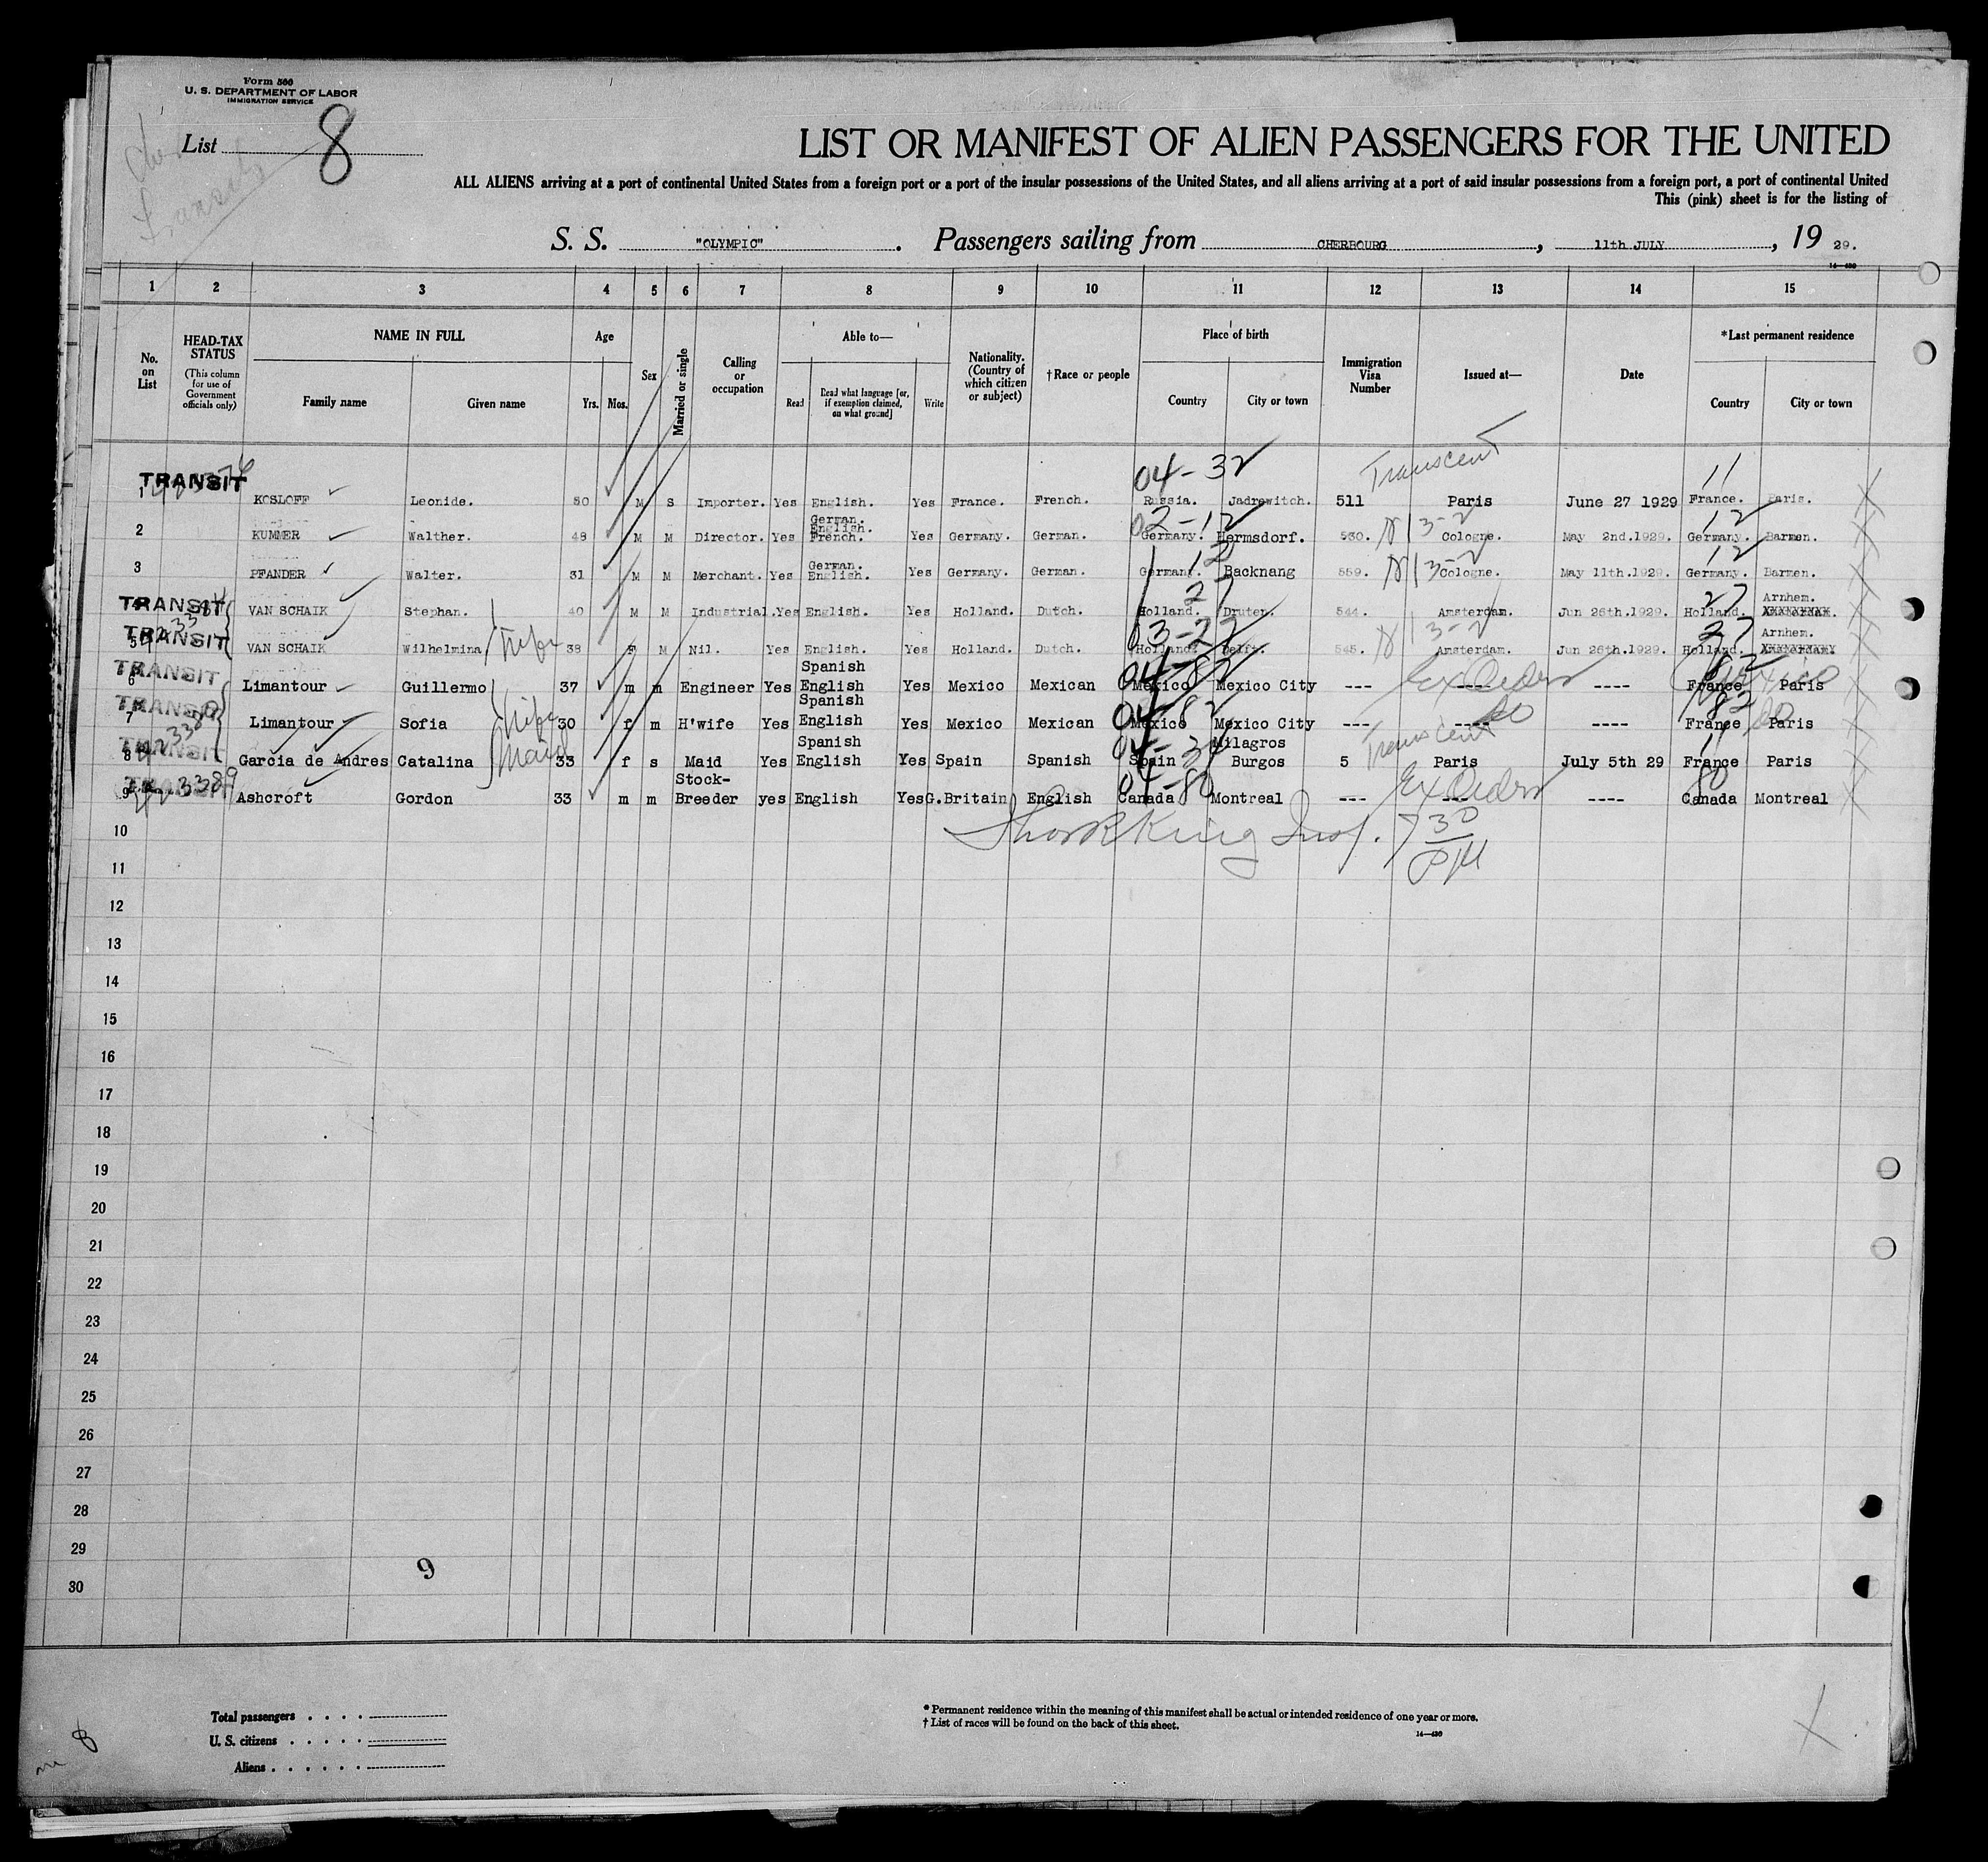 Form 500
U. S. DEPARTMENT OF LABOR
IMMIGRATION SERVICE
List 8
LIST OR MANIFEST OF ALIEN PASSENGERS FOR THE UNITED
ALL ALIENS arriving at a port of continental United States from a foreign port or a port of the insular possessions of the United States, and all aliens arriving at a port of said insular possessions from a foreign port, a port of continental United
This (pink) sheet is for the listing of
S. S. "OLYMPIC". Passengers sailing from CHERBOURG, 11th JULY, 19 29.
14-430
1 2 3 4 5 6 7 8 9 10 11 12 13 14 15
No. on List
HEAD-TAX STATUS
(This column for use of Government officials only)
NAME IN FULL
Family name Given name
Age
Yrs. Mos.
Sex
Married or single
Calling or occupation
Able to—
Read Read what language [or, if exemption claimed, on what ground] Write
Nationality. (Country of which citizen or subject)
†Race or people
Place of birth
Country City or town
Immigration Visa Number
Issued at—
Date
*Last permanent residence
Country City or town
04-32 Transcent 11
TRANSIT
1 KOSLOFF Leonide. 50 M S Importer. Yes English. Yes France. French. Russia. Jadrewitch. 511 Paris June 27 1929 France. Paris.
German.
English.
02-12 N 13-2 12
2 KUMMER Walther. 48 M M Director. Yes French. Yes Germany. German. Germany. Hermsdorf. 530. Cologne. May 2nd.1929. Germany. Barmen.
German.
12 N 13-2 12
3 PFANDER Walter. 31 M M Merchant. Yes English. Yes Germany. German. Germany. Backnang 559. Cologne. May 11th.1929. Germany. Barmen.
27 27 Arnhem.
TRANSIT VAN SCHAIK Stephan. 40 M M Industrial. Yes English. Yes Holland. Dutch. Holland. Druten. 544. Amsterdam. Jun 26th.1929. Holland.
3-22 N 13-2 27 Arnhem.
TRANSIT
5 VAN SCHAIK Wilhelmina Wife 38 F M Nil. Yes English. Yes Holland. Dutch. Holland. Delft. 545. Amsterdam. Jun 26th.1929. Holland.
TRANSIT Spanish
04-82 82 Mexico
6 Limantour Guillermo 37 m m Engineer Yes English Yes Mexico Mexican Mexico Mexico City --- ---- France Paris
TRANSIT Spanish
04-82 do 82 do
7 Limantour Sofia Wife 30 f m H'wife Yes English Yes Mexico Mexican Mexico Mexico City --- ---- ---- France Paris
TRANSIT Spanish Milagros
Transcent 11
8 Garcia de Andres Catalina Maid 33 f s Maid Yes English Yes Spain Spanish Spain Burgos 5 Paris July 5th 29 France Paris
TRANSIT Stock-
04-80 80
9 Ashcroft Gordon 33 m m Breeder yes English Yes G.Britain English Canada Montreal --- ---- Canada Montreal
King Insp. 7 30
PM
10
11
12
13
14
15
16
17
18
19
20
21
22
23
24
25
26
27
28
29
30
9
Total passengers
U. S. citizens
Aliens
* Permanent residence within the meaning of this manifest shall be actual or intended residence of one year or more.
† List of races will be found on the back of this sheet.
14-430
8